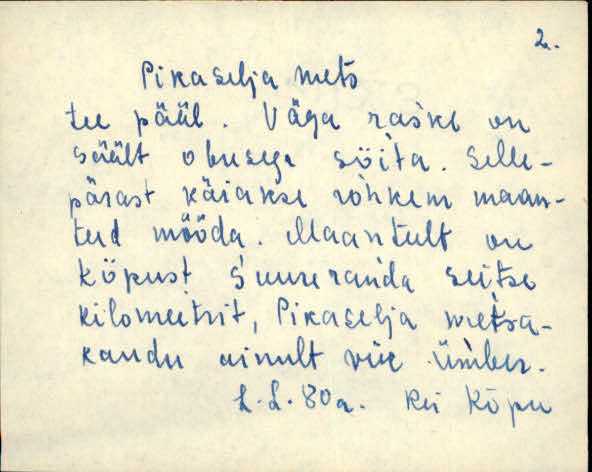 2.
Pikaselja mets
tee pääl. Väga raske on
säält obusega söita. Selle-
pärast käiakse rohkem maan-
teed mööda. Maanteelt on
Köpust Suureranda seitse
kilomeetrit, Pikaselja metsa-
kaudu ainult viie ümber.
L.L. 80a. Rei Köpu